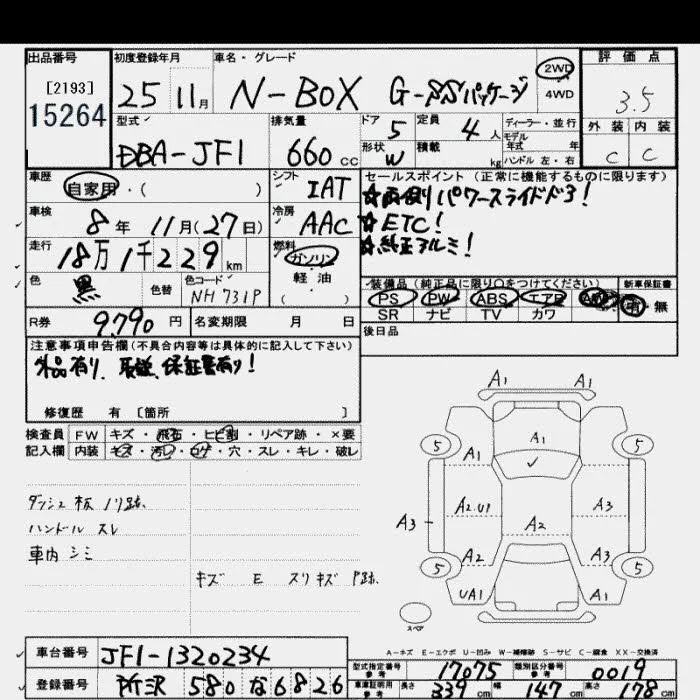 出品番号
[2193]
15264
初度登録年月
25 11月
車名・グレード
N-BOX G-SSパッケージ
2WD
4WD
評価点
3.5
外装 内装
C C
型式
DBA-JF1
排気量
660 cc
ドア 5
形状 W
定員 4 人
積載 kg
ディーラー・並行
モデル
年式 年
ハンドル 左・右
車歴
自家用・( )
シフト
IAT
車検
8年 11月(27日)
冷房
AAC
走行
18万1千229km
燃料
ガソリン
軽油
( )
色
黒
色替
色コード
NH731P
R券
9,790 円
名変期限 月 日
セールスポイント (正常に機能するものに限ります)
☆両側パワースライドドア!
☆ETC!
☆純正アルミ!
装備品(純正品に限り○をつけてください)
新車保証書
PS PW ABS エアB AW
SR ナビ TV カワ
有・無
後日品
注意事項申告欄(不具合内容等は具体的に記入して下さい)
外品有り、取説、保証書有り!
修復歴 有 [箇所 ]
検査員 FW キズ・飛石・ヒビ割・リペア跡・×要
記入欄 内装 キズ・汚レ・コゲ・穴・スレ・キレ・破レ
ダッシュ板 ノリ跡、
ハンドル スレ
車内 シミ
キズ E スリキズ P跡、
A1 A1
5 A1 5
A1 A1
A2.U1 A3
A3 A2
A2 A3
5 5
UA1 A1
スペア
A-キズ E-エクボ U-凹み W-補修跡 S-サビ C-腐食 XX-交換済
車台番号
JF1-1320234
登録番号
所沢 580 な 6826
型式指定番号
参考
17075
類別区分番号
参考
0019
車庫証明用
参考
長さ 339cm 幅 147cm 高さ 178cm